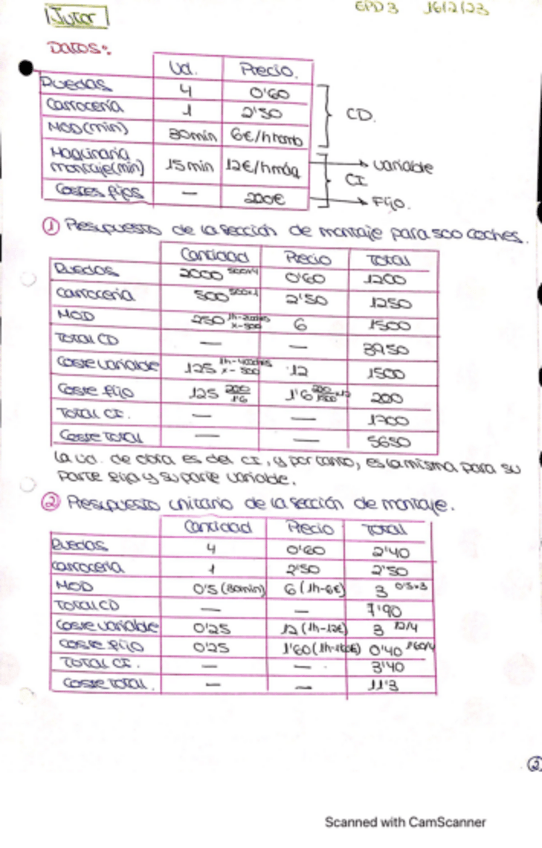 Jutor
EPD3 16/2/23
Datos:
Ud. Precio.
Ruedas 4 0'60
Carrocería 1 2'50
MOD (min) 30min 6€/hmob
CD.
Maquinaria
montaje (min) 15min 12€/hmáq
variable
CI
Costes fijos — 200€
Fijo.
① Presupuesto de la sección de montaje para 500 coches.
Cantidad Precio Total
Ruedas 2000 500x4 0'60 1200
Carrocería 500 500x1 2'50 1250
MOD 250 1h-2coches x-500 6 1500
Total CD — — 3950
Coste variable 125 1h-4coches x-500 12 1500
Coste fijo 125 200/1'6 1'6 200
Total CI. — — 1700
Coste total — — 5650
La ud. de obra es del CI, y por tanto, es la misma para su
parte fija y su parte variable.
② Presupuesto unitario de la sección de montaje.
Cantidad Precio Total
Ruedas 4 0'60 2'40
Carrocería 1 2'50 2'50
MOD 0'5 (30min) 6 (1h-6€) 3 0'5x3
Total CD — — 7'90
Coste variable 0'25 12 (1h-12€) 3 12/4
Coste fijo 0'25 1'60 (1h-1'60€) 0'40 1'60/4
Total CI. — — 3'40
Coste total. — — 11'3
②
Scanned with CamScanner